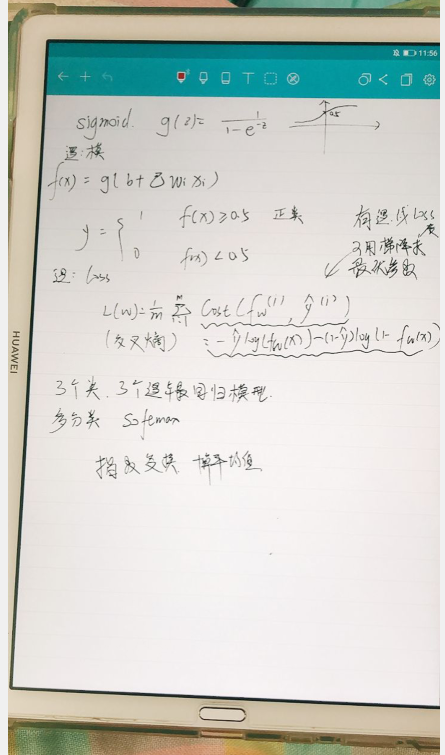 11:56
sigmoid. g(z)= 1/(1-e^-z) 0.5
逻:模
f(x) = g(b+Σ wi xi)
y = { 1 f(x)≥0.5 正类
0 f(x)<0.5
有逻.线 loss
可用梯降求
逻: loss
L(w)= 1/m Σ Cost(fw^(i), ŷ^(i))
(交叉熵) := -ŷ log(fw(x)) -(1-ŷ) log(1- fw(x))
3个类. 3个逻辑回归模型.
多分类 Sofemax
指数变换
HUAWEI